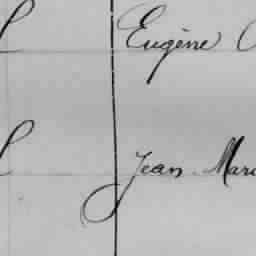 Eugène
Jean Marc